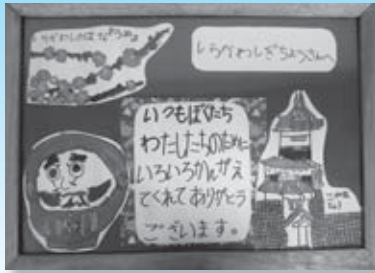 しらかわしのはな「うめ」
しらかわしぎちょうさんへ
いつもぼくたち
わたしたちのために
いろいろかんがえ
てくれてありがとう
ございます。